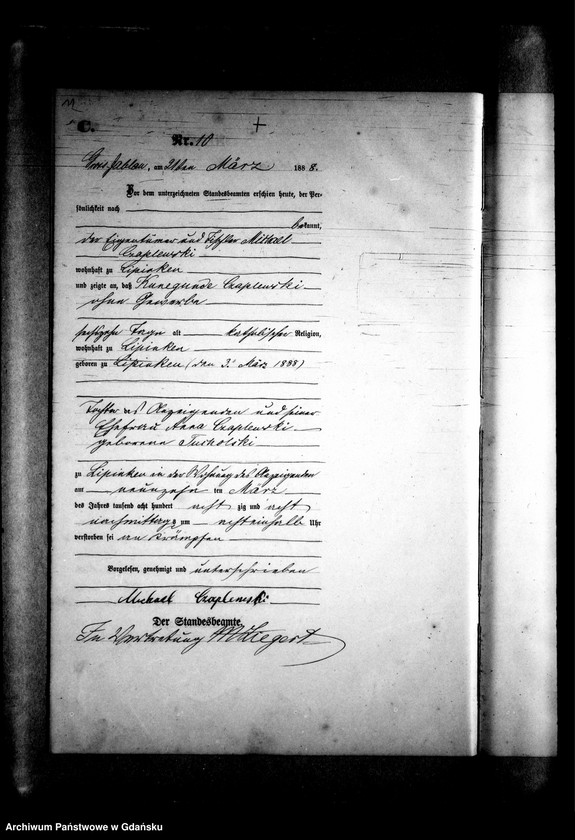 C.
Nr. 10
Gross Jablau, am 21ten März 1888.
Vor dem unterzeichneten Standesbeamten erschien heute, der Per-
sönlichkeit nach
bekannt,
der Eigentümer und Tischler Michael
Czaplewski
wohnhaft zu Lipinken
und zeigte an, daß Kunegunde Czaplewski
ohne Gewerbe
sechszehn Tage alt katholischer Religion,
wohnhaft zu Lipinken
geboren zu Lipinken (den 3. März 1888)
Tochter des Anzeigenden und seiner
Ehefrau Anna Czaplewski
geborene Tucholski
zu Lipinken in der Wohnung des Anzeigenden
am neunzehn ten März
des Jahres tausend acht hundert acht zig und acht
nachmittags um achteinhalb Uhr
verstorben sei an Krämpfen
Vorgelesen, genehmigt und unterschrieben
Michael Czaplewski
Der Standesbeamte.
In Vertretung
Archiwum Państwowe w Gdańsku